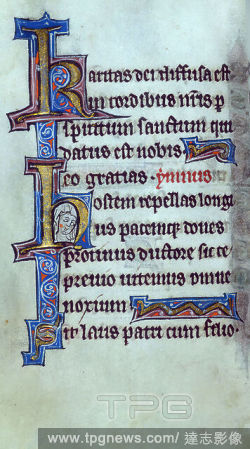 Karitas dei diffusa est
in cordibus nr̄is p
spiritum sanctum qui
datus est nobis
Deo gratias. ymnus
Hostem repellas longi
us pacemq; dones
protinus ductore sic te
previo vitemus omne
noxium
Sit laus patri cum filio
TPG
www.tpgnews.com/達志影像